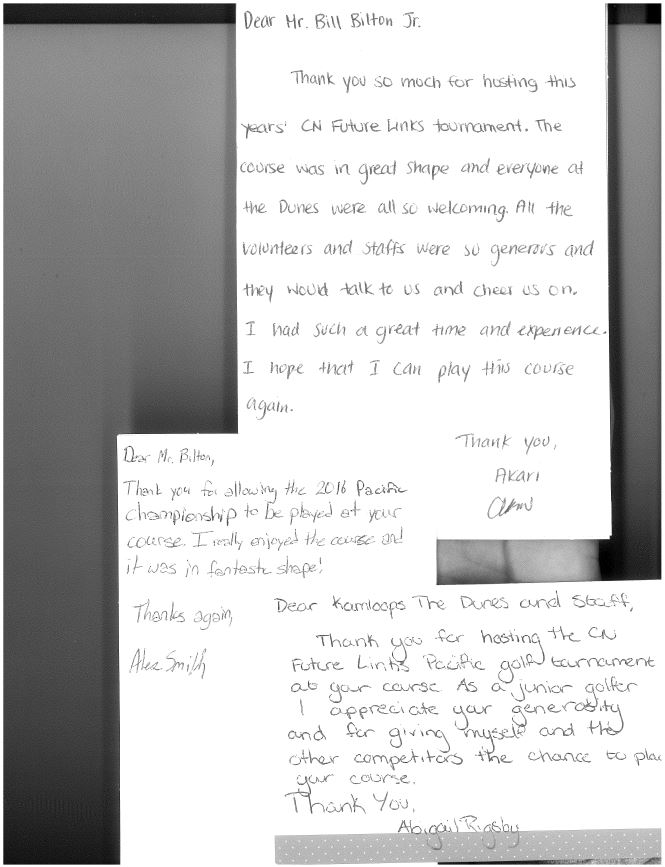 Dear Mr. Bill Bilton Jr.
Thank you so much for hosting this
years' CN Future Links tournament. The
course was in great shape and everyone at
the Dunes were all so welcoming. All the
volunteers and staffs were so generous and
they would talk to us and cheer us on.
I had such a great time and experience.
I hope that I can play this course
again.
Thank you,
Akari
Dear Mr. Bilton,
Thank you for allowing the 2016 Pacific
championship to be played at your
course. I really enjoyed the course and
it was in fantastic shape!
Thanks again,
Alex Smith
Dear Kamloops The Dunes and Staff,
Thank you for hosting the CN
Future Links Pacific golf tournament
at your course. As a junior golfer
I appreciate your generosity
and for giving myself and the
other competitors the chance to play
your course.
Thank You,
Abigail Rigsby